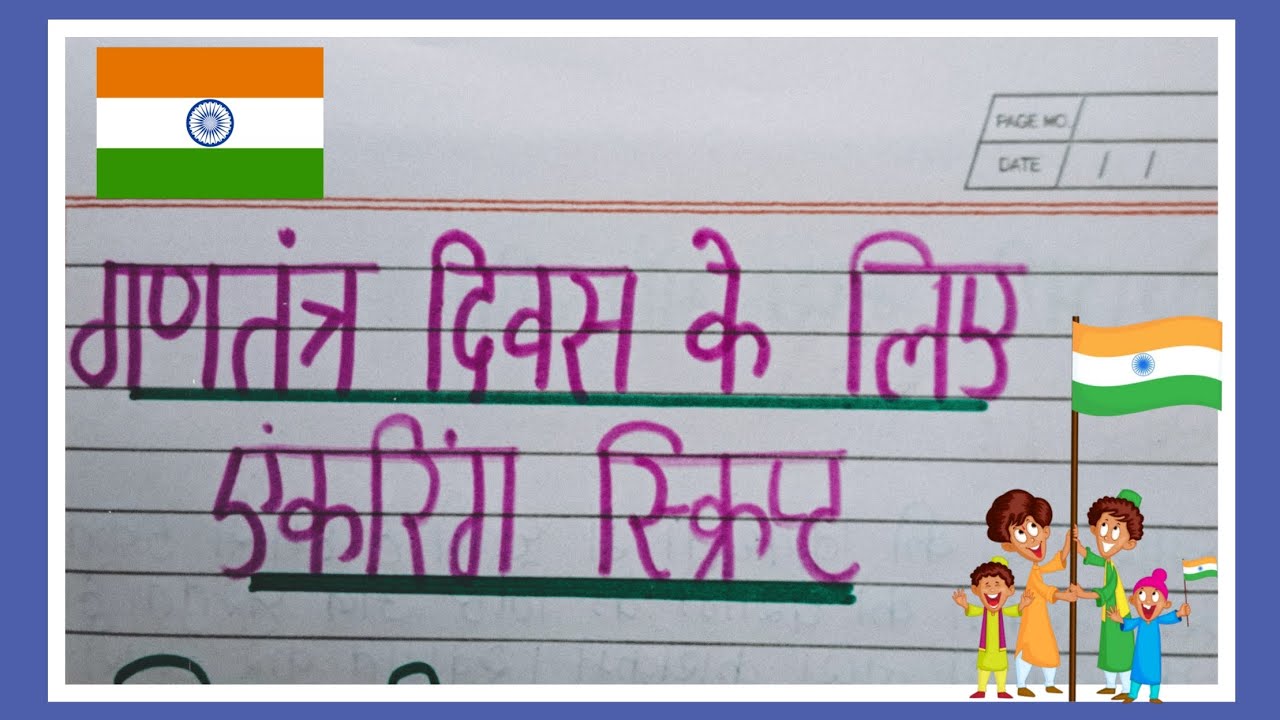 PAGE NO.
DATE / /
गणतंत्र दिवस के लिए
एंकरिंग स्क्रिप्ट